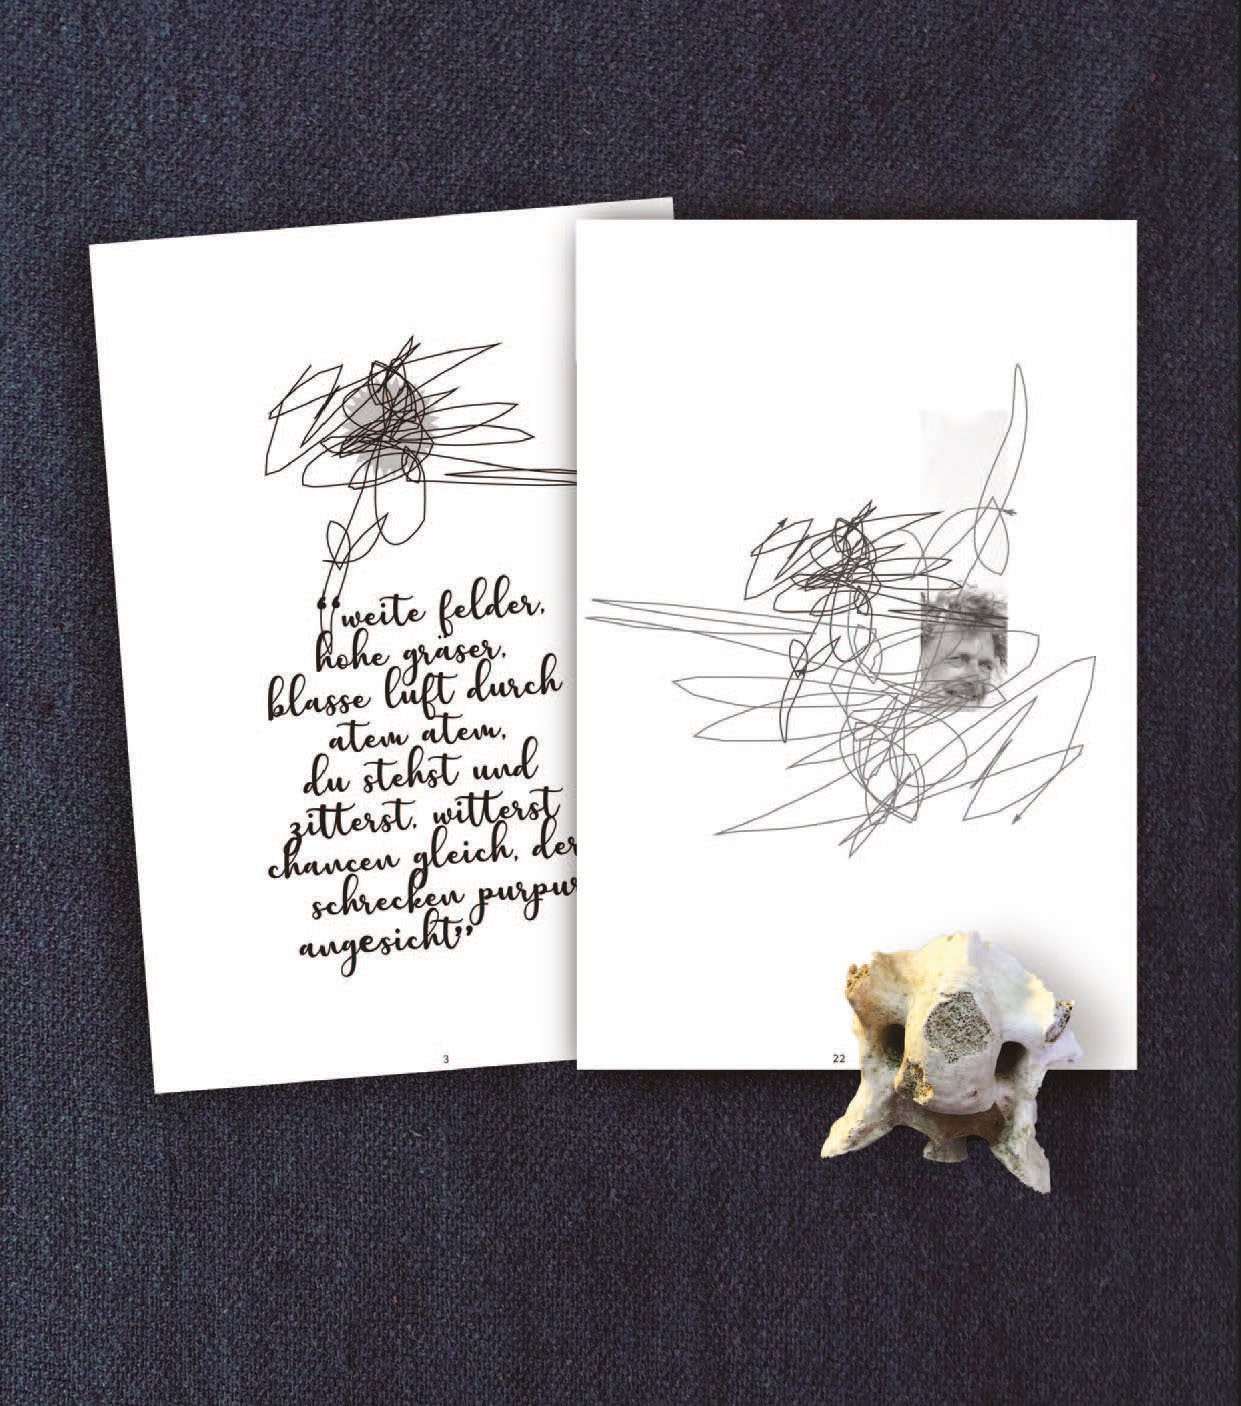 “weite felder,
hohe gräser,
blasse luft durch
atem atem,
du stehst und
zitterst, witterst
chancen gleich, der
schrecken purpur
angesicht”
3
22